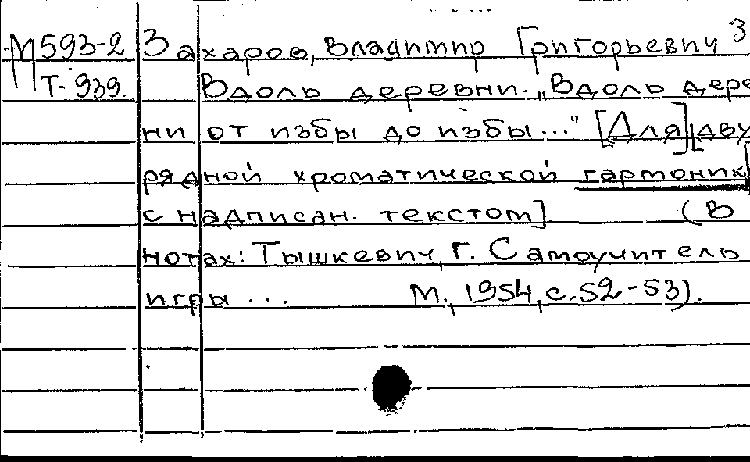 М593-2 Захаров, Владимир Григорьевич 3
Т-939. Вдоль деревни. „Вдоль дере
ни от избы до избы..." [Для] [двух
рядной хроматической гармоник]
с надписан. текстом] (В
нотах: Тышкевич, Г. Самоучитель
игры ... М., 1954, с. 52-53).